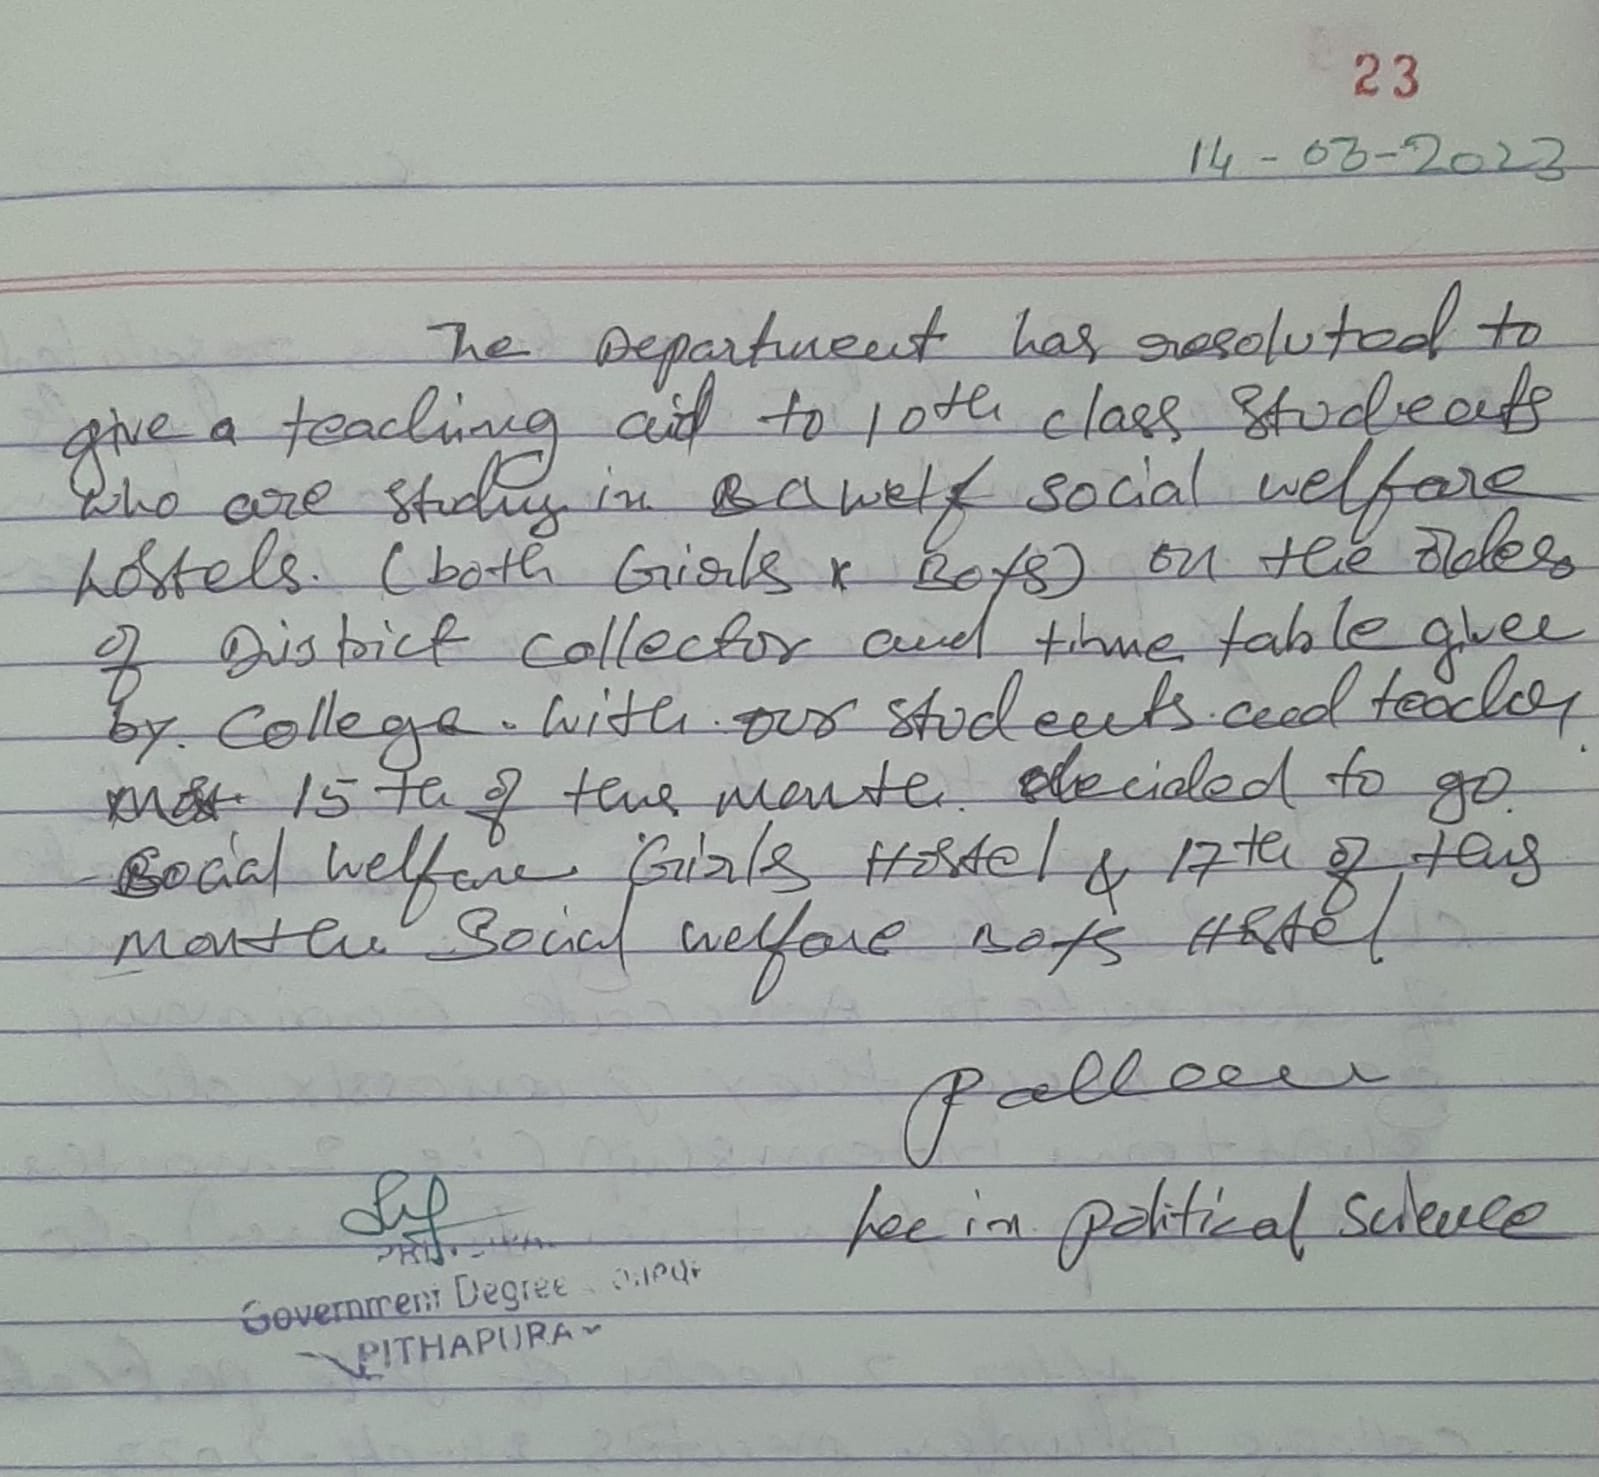 23
14-03-2023
The Department has resoluted to
give a teaching aid to 10th class Students
who are studing in social welfare
hostels. (both Girls & Boys) on the
of District collector and time table given
by. College. With our students and teacher
15th of this month. decided to go
Social Welfare Girls Hostel & 17th of this
month Social welfare Boys Hostel
Lec in political Science
Government Degree
PITHAPURA